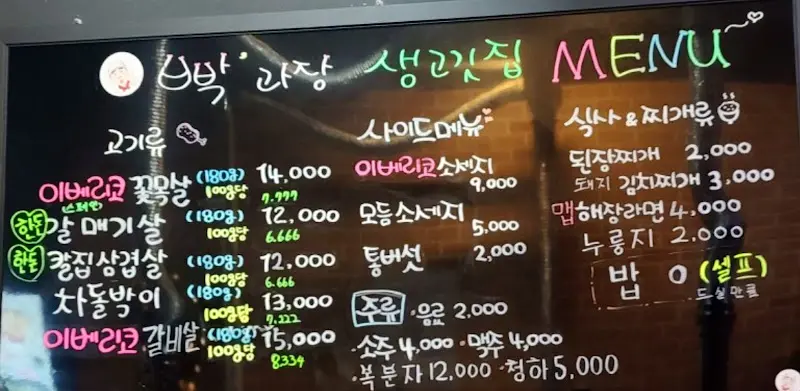 박 과장 생고깃집 MENU
고기류
이베리코 꽃목살 (180g) 14,000
(스페인) 100g당 7.777
한돈 갈매기살 (180g) 12,000
100g당 6.666
한돈 칼집삼겹살 (180g) 12,000
100g당 6.666
차돌박이 (180g) 13,000
100g당 7.222
이베리코 갈비살 (180g) 15,000
100g당 8334
사이드메뉴
이베리코 소세지
9,000
모듬소세지
5,000
통버섯 2,000
주류 ·음료 2,000
·소주 4,000 ·맥주 4,000
·복분자 12,000 ·청하 5,000
식사 & 찌개류
된장찌개 2,000
돼지 김치찌개 3,000
맵 해장라면 4,000
누룽지 2.000
밥 0 (셀프)
드실만큼